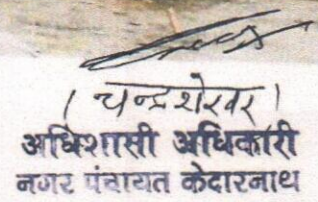 (चन्द्रशेखर)
अधिशासी अधिकारी
नगर पंचायत केदारनाथ